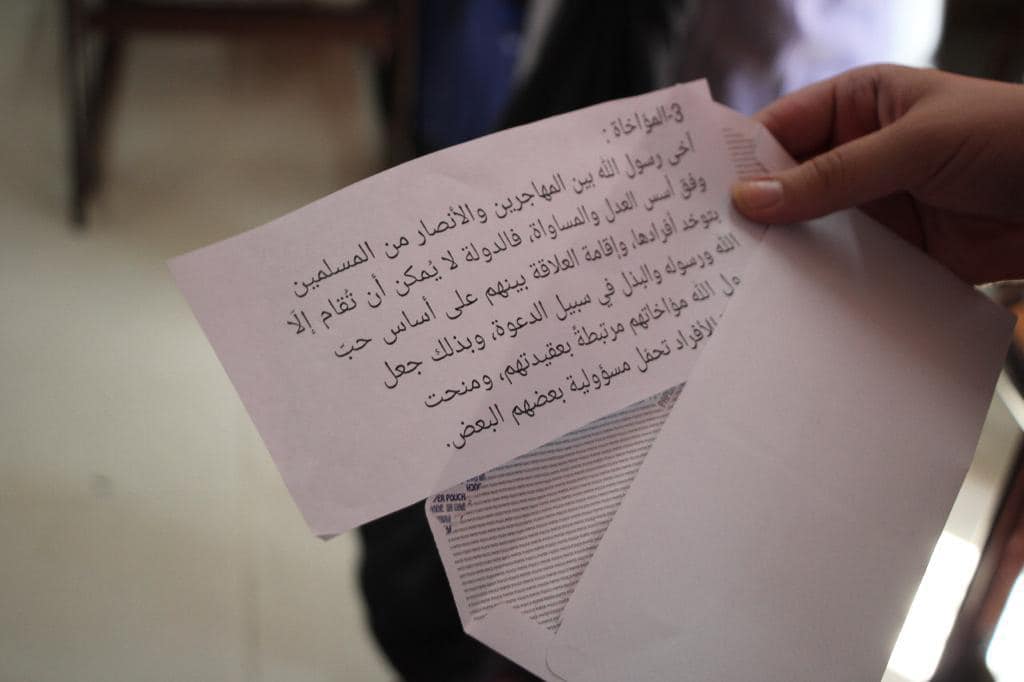 3-المؤاخاة :
آخى رسول الله بين المهاجرين والأنصار من المسلمين
وفق أسس العدل والمساواة، فالدولة لا يُمكن أن تُقام إلّا
بتوحّد أفرادها، وإقامة العلاقة بينهم على أساس حبّ
الله ورسوله والبذل في سبيل الدعوة، وبذلك جعل
الله مؤاخاتهم مرتبطةً بعقيدتهم، ومنحت
الأفراد تحمّل مسؤولية بعضهم البعض.